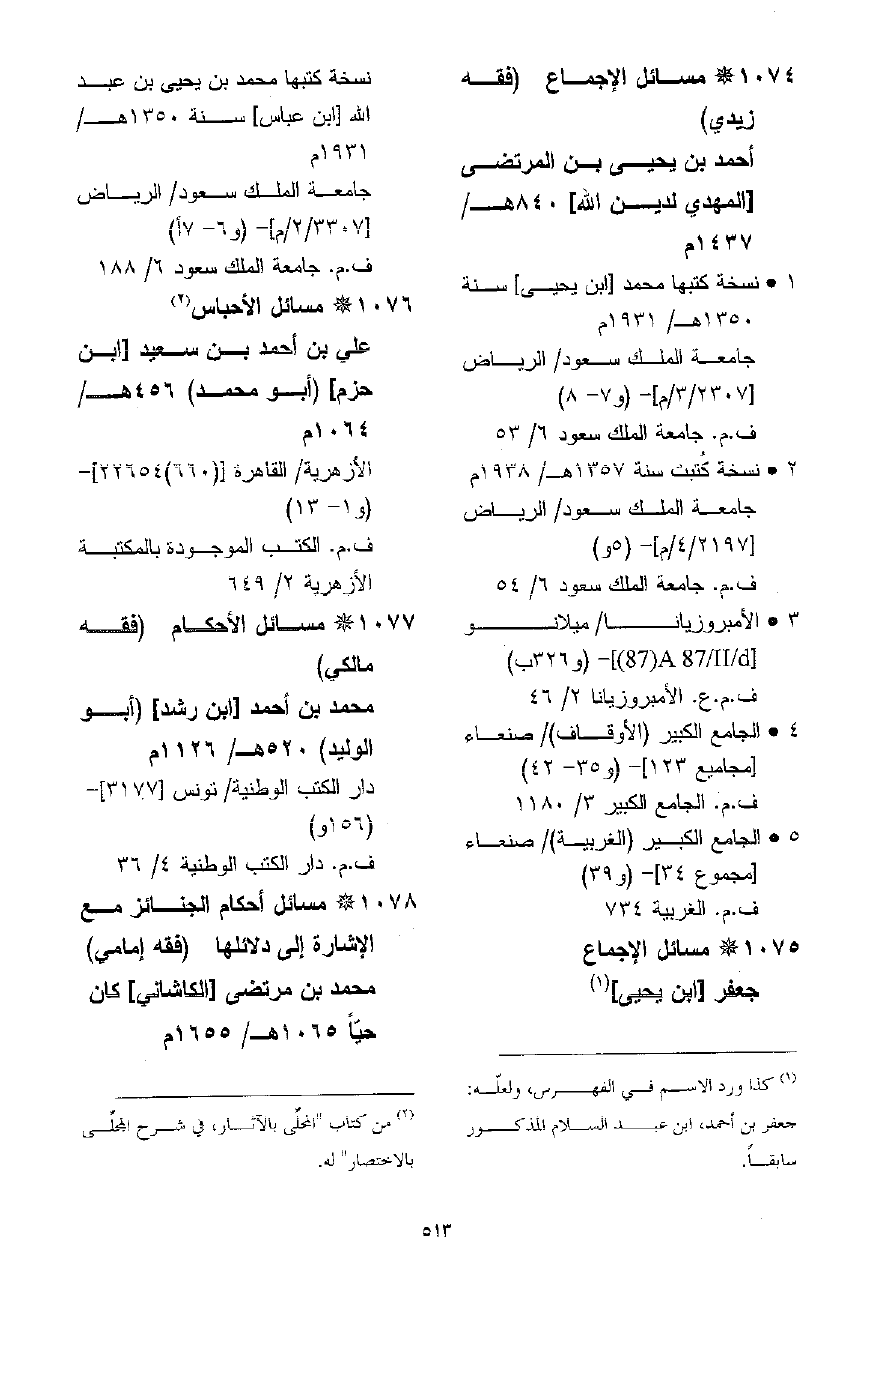 ١٠٧٤ ❋ مسائل الإجماع (فقه
زيدي)
أحمد بن يحيى بن المرتضى
[المهدي لدين الله] ٨٤٠هـ/
١٤٣٧م
١ • نسخة كتبها محمد [ابن يحيى] سنة
١٣٥٠هـ/ ١٩٣١م
جامعة الملك سعود/ الرياض
[٣/٢٣٠٧/م]- (و٧- ٨)
ف.م. جامعة الملك سعود ٦/ ٥٣
٢ • نسخة كُتبت سنة ١٣٥٧هـ/ ١٩٣٨م
جامعة الملك سعود/ الرياض
[٤/٢١٩٧/م]- (٥و)
ف.م. جامعة الملك سعود ٦/ ٥٤
٣ • الأمبروزيانا/ ميلانو
[(87)A 87/II/d]- (و٣٢٦ب)
ف.م.ع. الأمبروزيانا ٢/ ٤٦
٤ • الجامع الكبير (الأوقاف)/ صنعاء
[مجاميع ١٢٣]- (و٣٥- ٤٢)
ف.م. الجامع الكبير ٣/ ١١٨٠
٥ • الجامع الكبير (الغربية)/ صنعاء
[مجموع ٣٤]- (و٣٩)
ف.م. الغربية ٧٣٤
١٠٧٥ ❋ مسائل الإجماع
جعفر [ابن يحيى](١)
(١) كذا ورد الاسم في الفهرس، ولعلّه:
جعفر بن أحمد، ابن عبد السلام المذكور
سابقاً.
نسخة كتبها محمد بن يحيى بن عبد
الله [ابن عباس] سنة ١٣٥٠هـ/
١٩٣١م
جامعة الملك سعود/ الرياض
[٢/٣٣٠٧/م]- (و٦- ٧أ)
ف.م. جامعة الملك سعود ٦/ ١٨٨
١٠٧٦ ❋ مسائل الأحباس(٢)
علي بن أحمد بن سعيد [ابن
حزم] (أبو محمد) ٤٥٦هـ/
١٠٦٤م
الأزهرية/ القاهرة [(٦٦٠)٢٢٦٥٤]-
(و١- ١٣)
ف.م. الكتب الموجودة بالمكتبة
الأزهرية ٢/ ٦٤٩
١٠٧٧ ❋ مسائل الأحكام (فقه
مالكي)
محمد بن أحمد [ابن رشد] (أبو
الوليد) ٥٢٠هـ/ ١١٢٦م
دار الكتب الوطنية/ تونس [٣١٧٧]-
(١٥٦و)
ف.م. دار الكتب الوطنية ٤/ ٣٦
١٠٧٨ ❋ مسائل أحكام الجنائز مع
الإشارة إلى دلائلها (فقه إمامي)
محمد بن مرتضى [الكاشاني] كان
حيّاً ١٠٦٥هـ/ ١٦٥٥م
(٢) من كتاب "المحلّى بالآثار، في شرح المجلّى
بالاختصار" له.
٥١٣